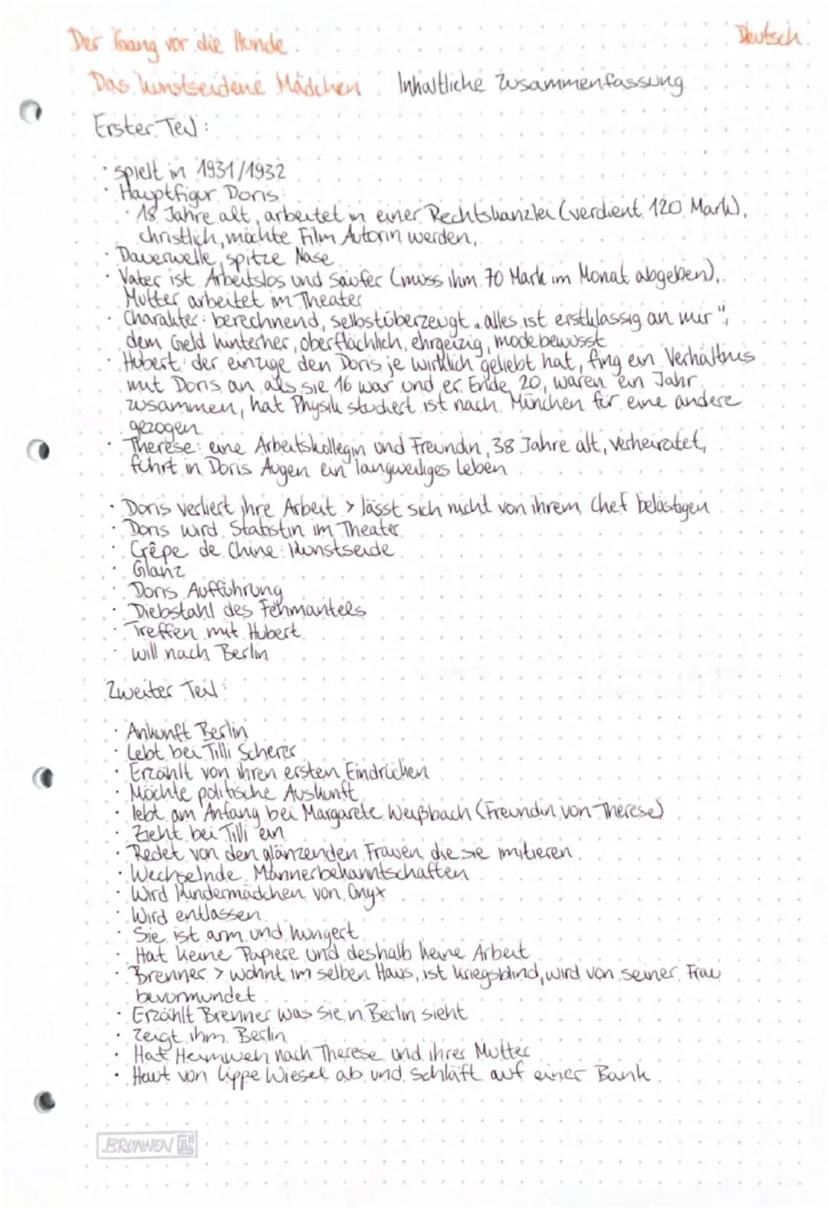 Der Gang vor die Hunde Deutsch
Das kunstseidene Mädchen Inhaltliche Zusammenfassung
Erster Teil:
· spielt in 1931/1932
· Hauptfigur Doris:
· 18 Jahre alt, arbeitet in einer Rechtskanzlei (verdient 120 Mark),
christlich, möchte Film Autorin werden,
· Dauerwelle, spitze Nase
· Vater ist Arbeitslos und Säufer (muss ihm 70 Mark im Monat abgeben),
Mutter arbeitet im Theater
· Charakter: berechnend, selbstüberzeugt „alles ist erstklassig an mir",
dem Geld hinterher, oberflächlich, ehrgeizig, modebewusst
· Hubert: der einzige den Doris je wirklich geliebt hat, fing ein Verhältnis
mit Doris an als sie 16 war und er Ende 20, waren ein Jahr
zusammen, hat Physik studiert ist nach München für eine andere
gezogen
· Therese: eine Arbeitskollegin und Freundin, 38 Jahre alt, verheiratet,
führt in Doris Augen ein langweiliges Leben
· Doris verliert ihre Arbeit > lässt sich nicht von ihrem Chef belästigen
· Doris wird Statistin im Theater
· Crêpe de Chine: Kunstseide
· Glanz
· Doris Aufführung
· Diebstahl des Fehmantels
· Treffen mit Hubert
· will nach Berlin
Zweiter Teil:
· Ankunft Berlin
· Lebt bei Tilli Scherer
· Erzählt von ihren ersten Eindrücken
· Möchte politische Auskunft
· lebt am Anfang bei Margarete Weißbach (Freundin von Therese)
· Zieht bei Tilli ein
· Redet von den glänzenden Frauen die sie imitieren
· Wechselnde Männerbekanntschaften
· Wird Kindermädchen von Onyx
· Wird entlassen
· Sie ist arm und hungert
· Hat keine Papiere und deshalb keine Arbeit
· Brenner > wohnt im selben Haus, ist kriegsblind, wird von seiner Frau
bevormundet
· Erzählt Brenner was sie in Berlin sieht
· Zeigt ihm Berlin
· Hat Heimweh nach Therese und ihrer Mutter
· Haut von Lippe Wiesel ab und schläft auf einer Bank
BRUNNEN